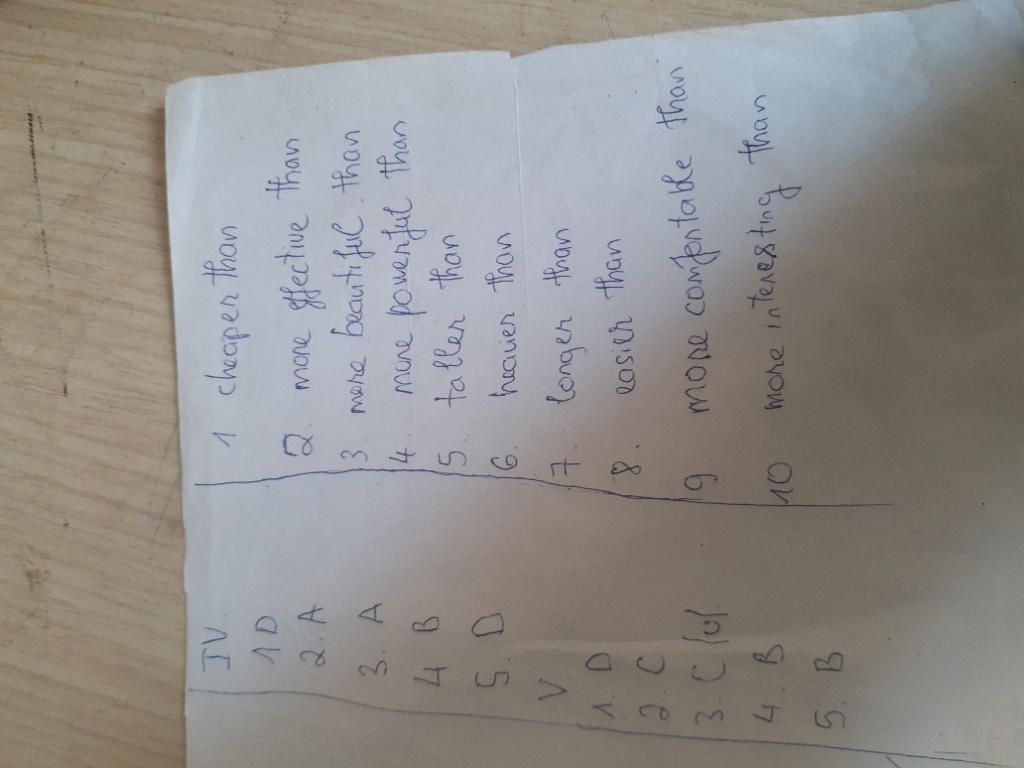 IV.
1 D
2. A
3. A
4 B
5. D
V
1. D
2 C
3. C
4. B
5. B
1 cheaper than
2. more effective than
3. more beautiful than
4. more powerful than
5. taller than
6. heavier than
7. longer than
8. easier than
9 more comfortable than
10 more interesting than